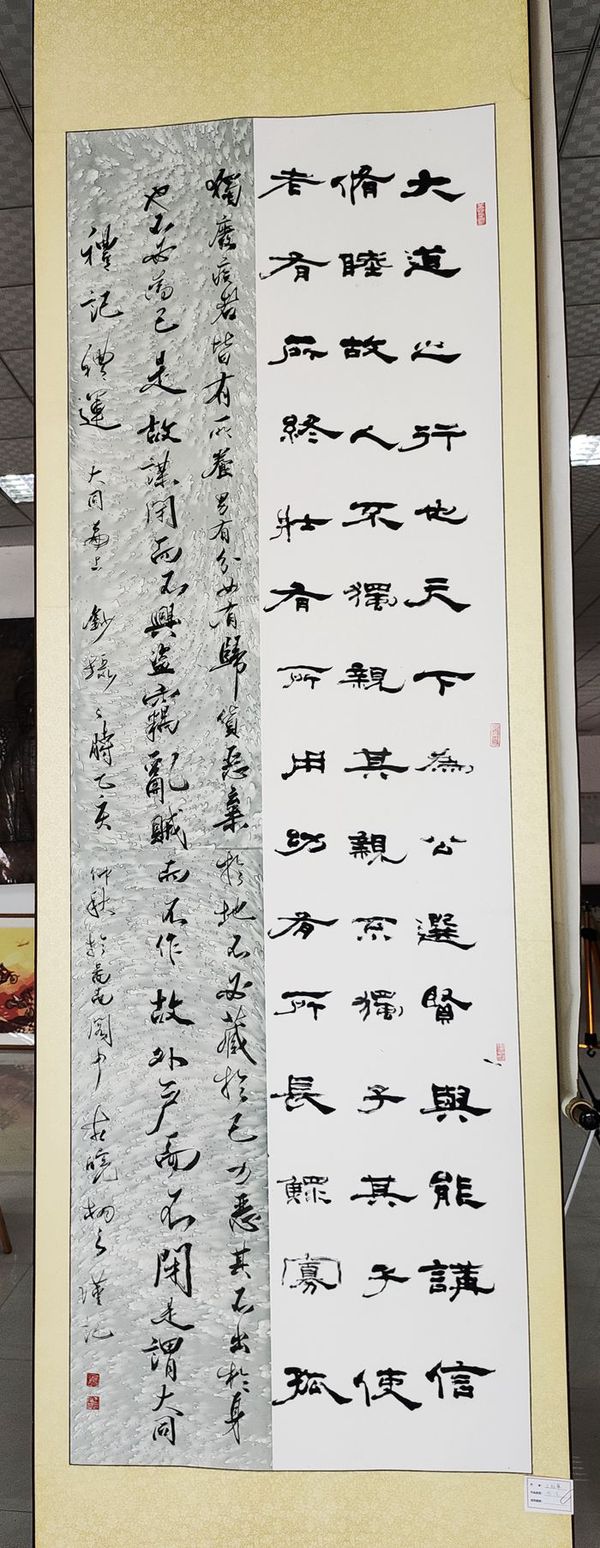 大道之行也天下為公選賢與能講信
脩睦故人不獨親其親不獨子其子使
老有所終壯有所用幼有所長鰥寡孤
獨廢疾者皆有所養男有分女有歸貨惡棄於地不必藏於己力惡其不出於身
也不必為己是故謀閉而不興盜竊亂賊而不作故外戶而不閉是謂大同
禮記禮運大同篇上鈔錄之時乙亥仲秋於閣中曉謹記